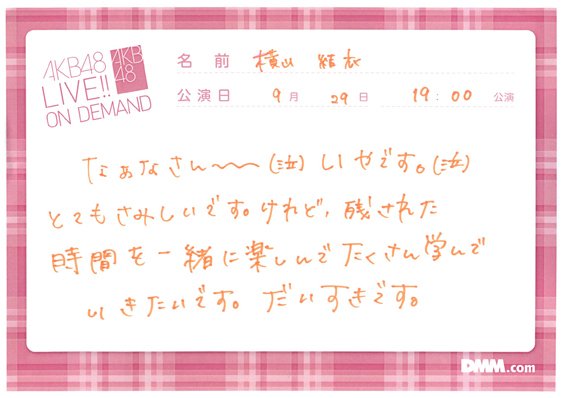 AKB48
LIVE!!
ON DEMAND
AKB
48
名前 横山 結衣
公演日 9月 29日 19:00 公演
なぁなさん〜〜(泣)しいやです。(泣)
とてもさみしいです。けれど、残された
時間を一緒に楽しんでたくさん学んで
いきたいです。だいすきです。
DMM.com